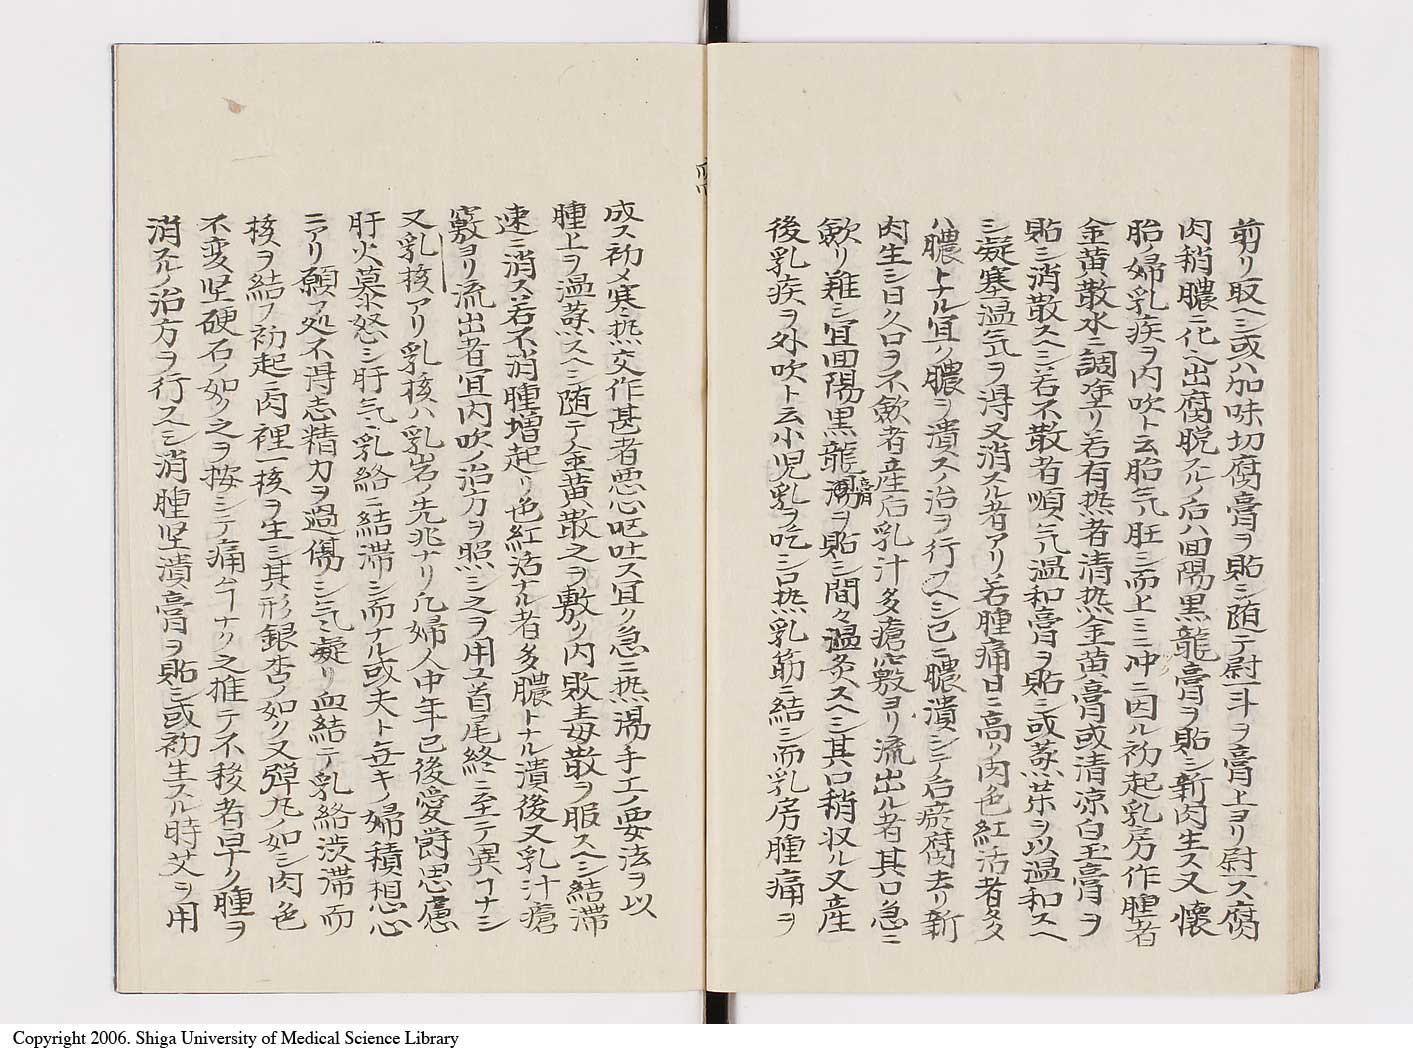 剪リ取ヘシ或ハ加味切腐膏ヲ貼シ随テ尉斗ヲ膏上ヨリ尉ス腐
肉稍膿ニ化ヘ出腐脱スルノ后ハ回陽黒龍膏ヲ貼シ新肉生ス又懐
胎ノ婦乳疾ヲ内吹ト云胎気旺ニ而上ミニ冲ニ因ル初起乳房作腫者
金黄散水ニ調塗リ若有熱者清熱金黄膏或清凉白玉膏ヲ
貼シ消散スヘシ若不散者順気温和膏ヲ貼シ或蒸荣ヲ以温和スヘ
シ凝寒温気ヲ得又消スル者アリ若腫痛日ニ高ク肉色紅活者多
ハ膿トナル宜ク膿ヲ潰スノ治ヲ行スヘシ已ニ膿潰シテ后瘀腐去リ新
肉生シ日久口ヲ不歛者産后乳汁多瘡竅ヨリ流出ル者其口急ニ
歛リ難シ宜回陽黒龍湯膏ヲ貼シ間々温灸スヘシ其口稍収ル又産
後乳疾ヲ外吹ト云小児乳ヲ吃シ口熱乳筋ニ結シ而乳房腫痛ヲ
成ス初メ寒熱交作甚者悪心呕吐ス宜ク急ニ熱湯手工ノ要法ヲ以
腫上ヲ温蒸スヘシ随テ金黄散之ヲ敷ク内敗毒散ヲ服スヘシ結滞
速ニ消ス若不消腫増起リ色紅活ナル者多膿トナル潰後又乳汁瘡
竅ヨリ流出者宜内吹ノ治方ヲ照シ之ヲ用ユ首尾終ニ至テ異ヿナシ
又乳核アリ乳核ハ乳岩ノ先兆ナリ凡婦人中年已後愛欝思慮
肝火暴怒シ肝気乳絡ニ結滞シ而ナル或夫ト無キノ婦積想心
ニアリ願フ処不得志精力ヲ過傷シ気凝リ血結テ乳絡渋滞而
核ヲ結フ初起ニ肉裡一核ヲ生シ其形銀杏ノ如ク又弾丸ノ如シ肉色
不変坚硬石ノ如ク之ヲ按シテ痛ムヿナリ之推テ不移者早ク腫ヲ
消スルノ治方ヲ行スヘシ消腫坚潰膏ヲ貼シ或初生スル時艾ヲ用